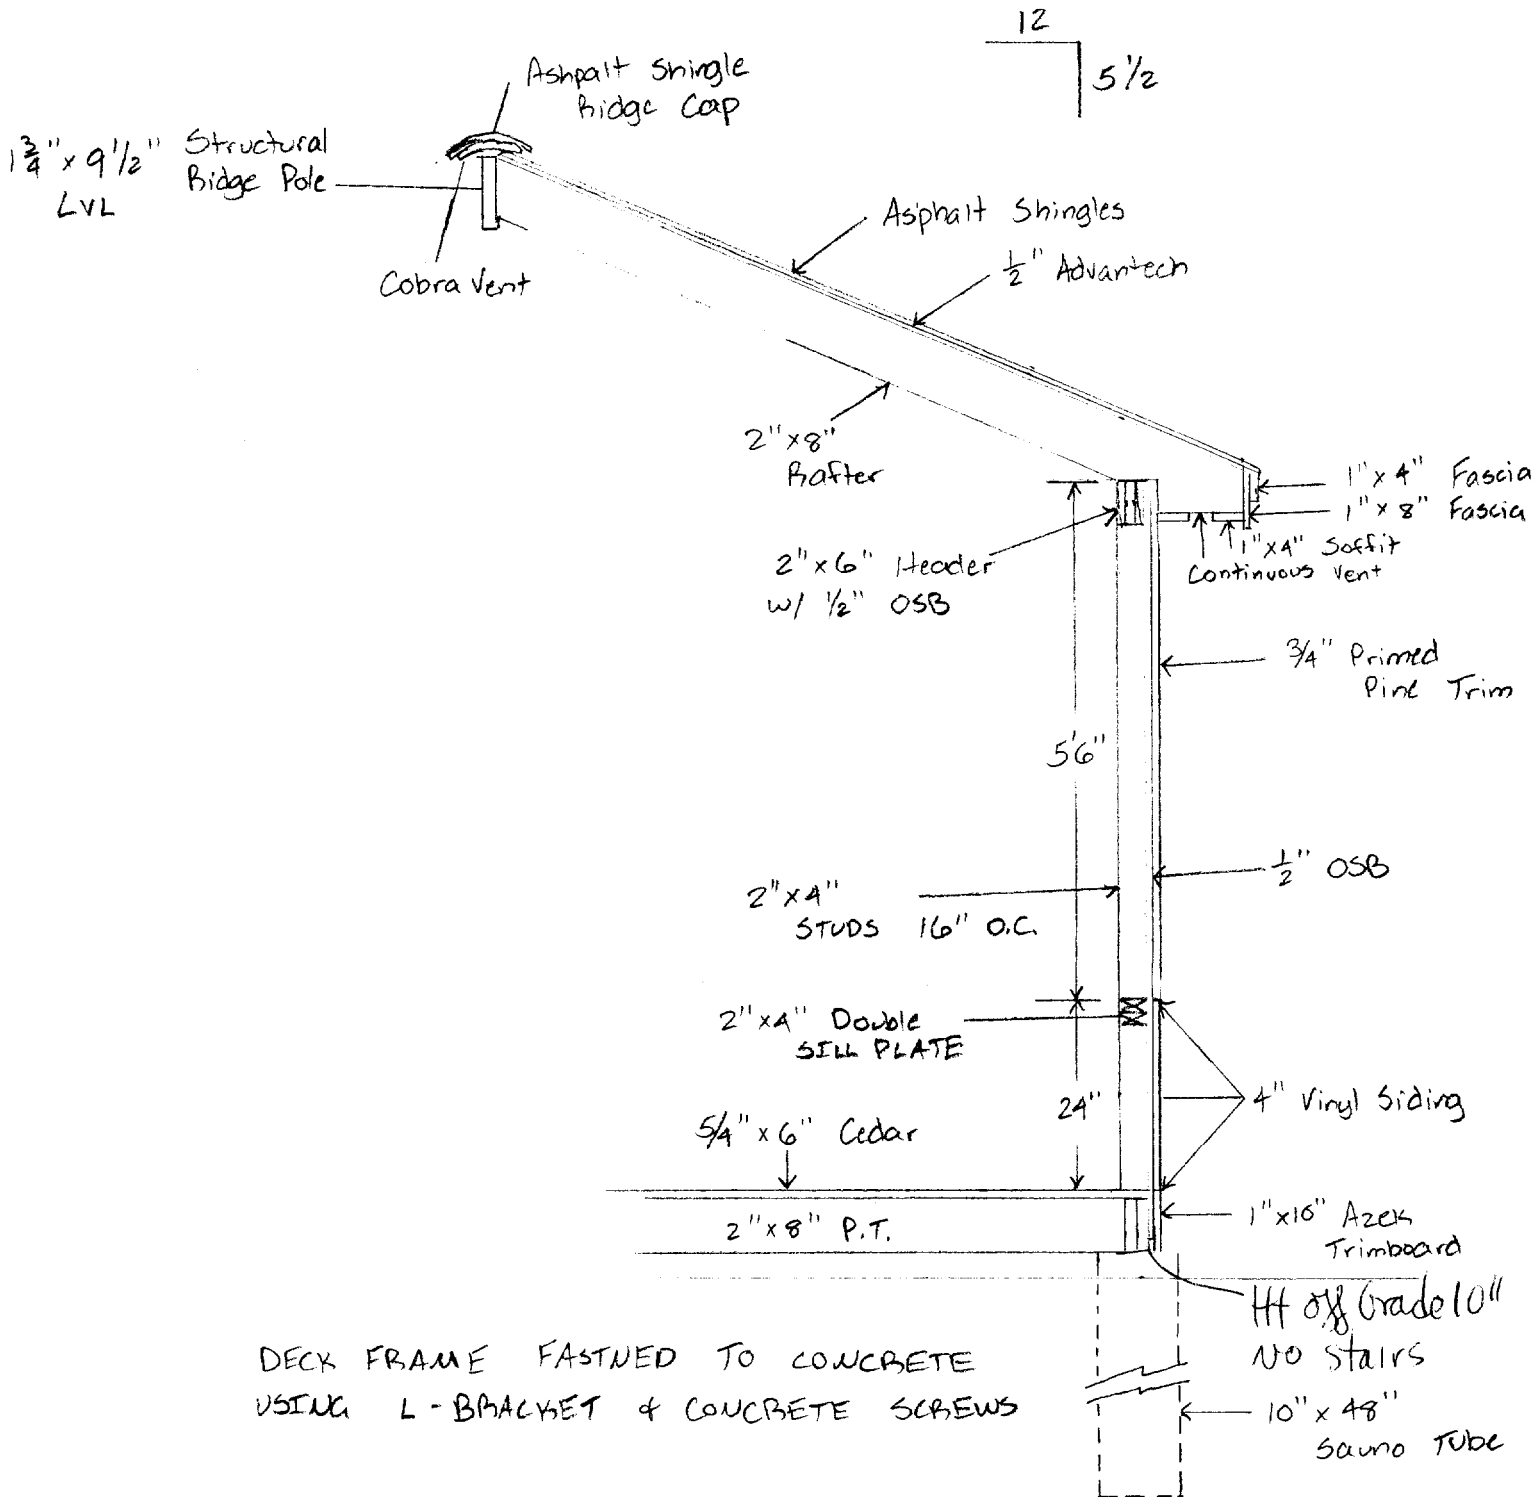 12
5 1/2
Ashpalt Shingle
Ridge Cap
1 3/4" x 9 1/2" Structural
Ridge Pole
LVL
Asphalt Shingles
1/2" Advantech
Cobra Vent
2" x 8"
Rafter
1" x 4" Fascia
1" x 8" Fascia
1" x 4" Soffit
Continuous Vent
2" x 6" Header
w/ 1/2" OSB
3/4" Primed
Pine Trim
5'6"
1/2" OSB
2" x 4"
STUDS 16" O.C.
2" x 4" Double
SILL PLATE
24"
4" Vinyl Siding
5/4" x 6" Cedar
2" x 8" P.T.
1" x 10" Azek
Trimboard
Ht off Grade 10"
No Stairs
DECK FRAME FASTNED TO CONCRETE
USING L-BRACKET & CONCRETE SCREWS
10" x 48"
Sauno Tube